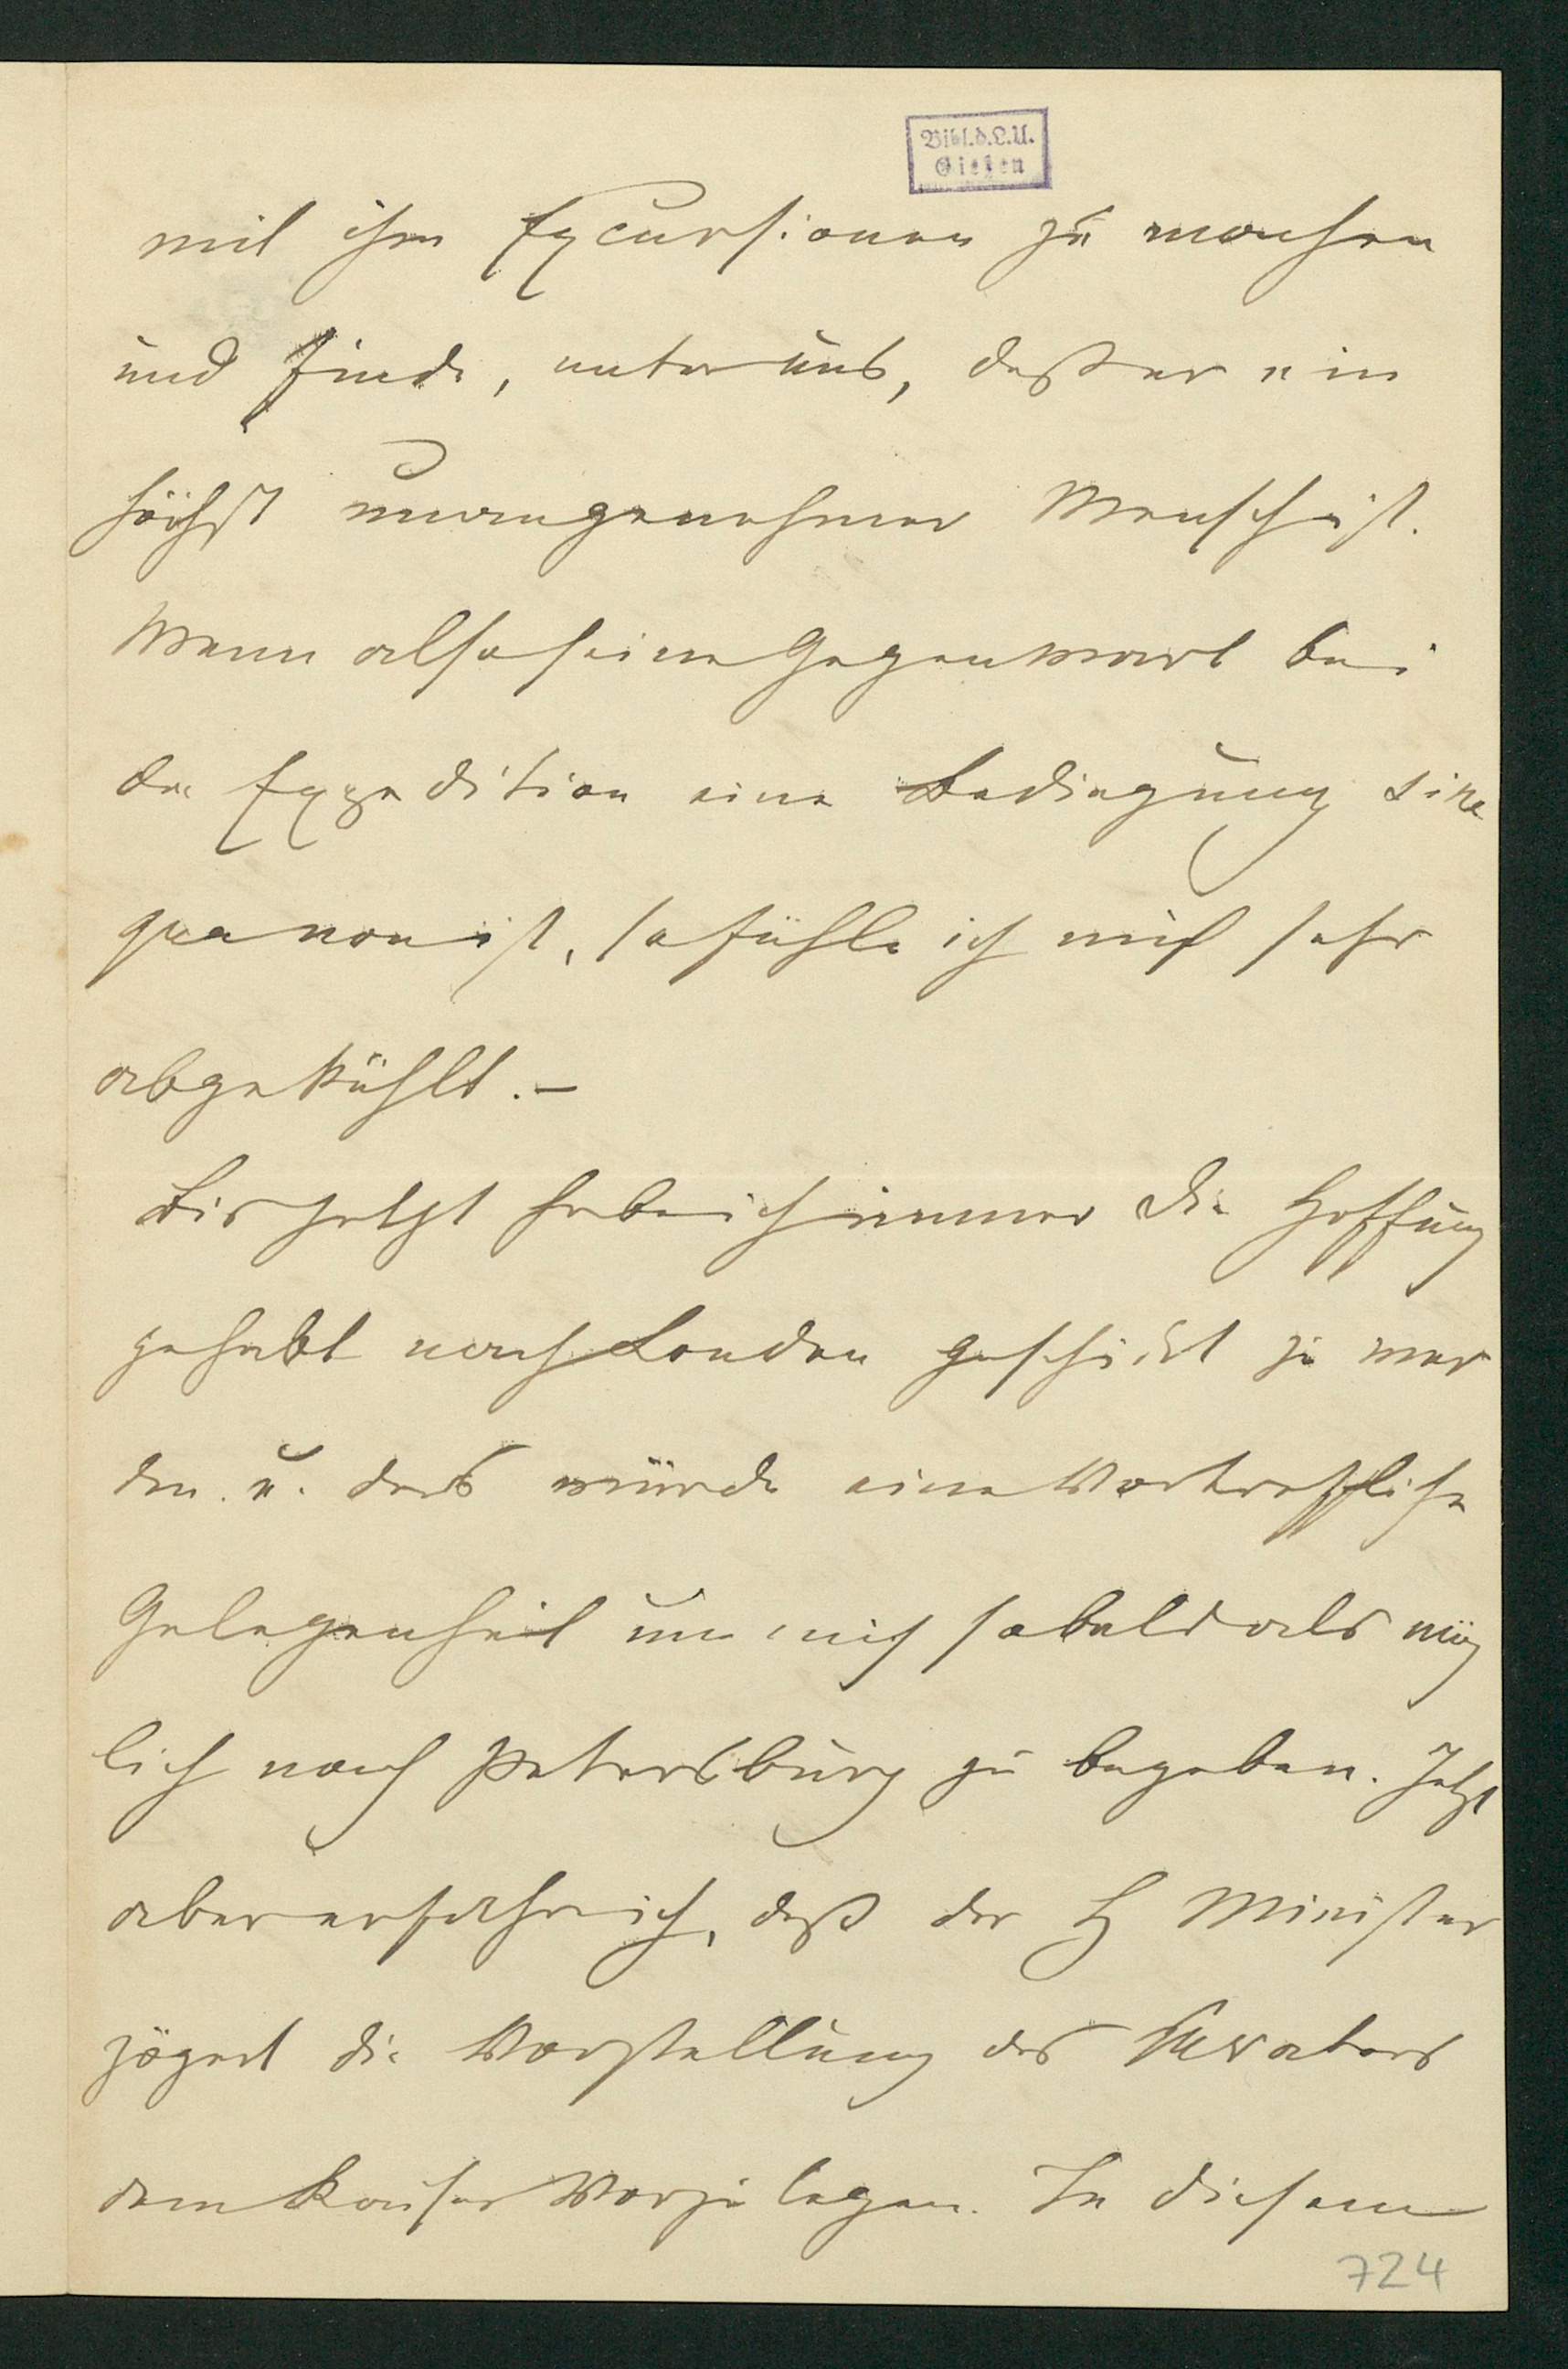 Bibl.d.L.U.
Gießen
mit ihm Excursionen zu machen
und finde, unter uns, daß er ein
höchst unangenehmer Mensch ist.
Wenn also seine Gegenwart bei
der Expedition eine Bedingung sine
qua non ist, so fühle ich mich sehr
abgekühlt. –
Bis jetzt habe ich immer die Hoffung
gehabt nach London geschickt zu wer
den. u. das würde eine Vortreffliche
Gelegenheit um mich sobald als mög
lich nach Petersburg zu begeben. Jetzt
aber erfahre ich, daß der H Minister
zögert die Vorstellung des Curators
dem Kaiser Vorzulegen. In diesem
724